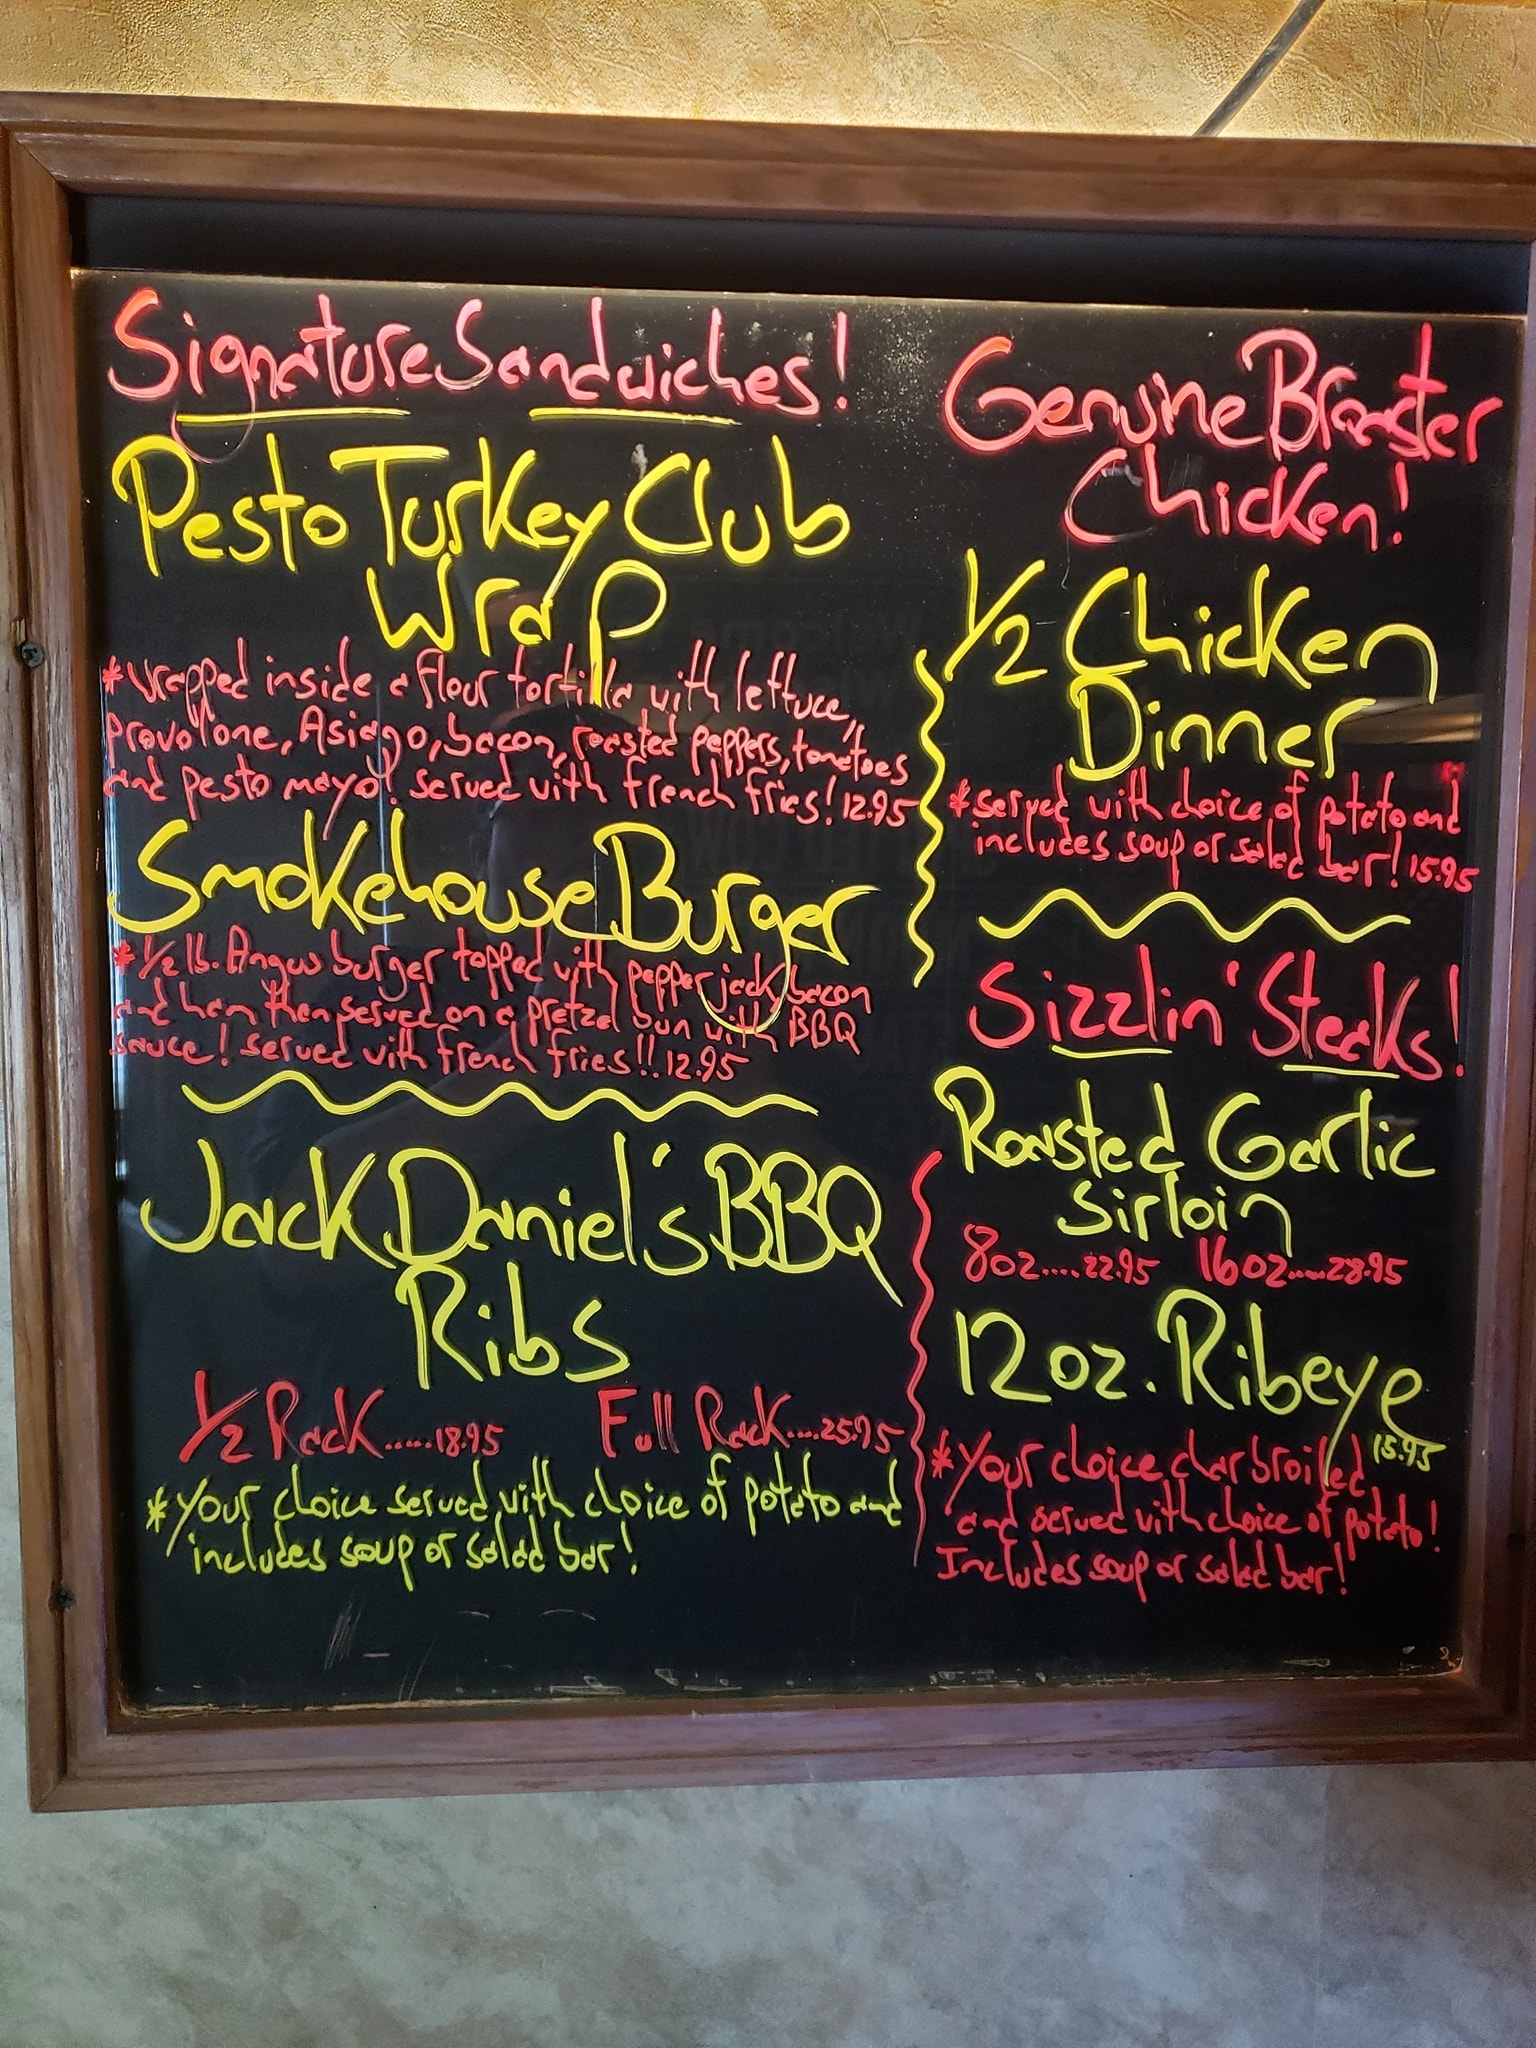 Signature Sandwiches!
Pesto Turkey Club
Wrap
*wrapped inside a flour tortilla with lettuce,
provolone, Asiago, bacon, roasted peppers, tomatoes
and pesto mayo! served with french fries! 12.95
Smokehouse Burger
*1/2 lb. Angus burger topped with pepper jack, bacon
and ham then served on a pretzel bun with BBQ
sauce! served with french fries!! 12.95
Jack Daniel's BBQ
Ribs
1/2 Rack......18.95 Full Rack....25.95
*Your choice served with choice of potato and
includes soup or salad bar!
Genuine Broaster
Chicken!
1/2 Chicken
Dinner
*served with choice of potato and
includes soup or salad bar! 15.95
Sizzlin' Steaks!
Roasted Garlic
Sirloin
8oz....22.95 16oz.....28.95
12oz. Ribeye
15.95
*Your choice charbroiled
and served with choice of potato!
Includes soup or salad bar!